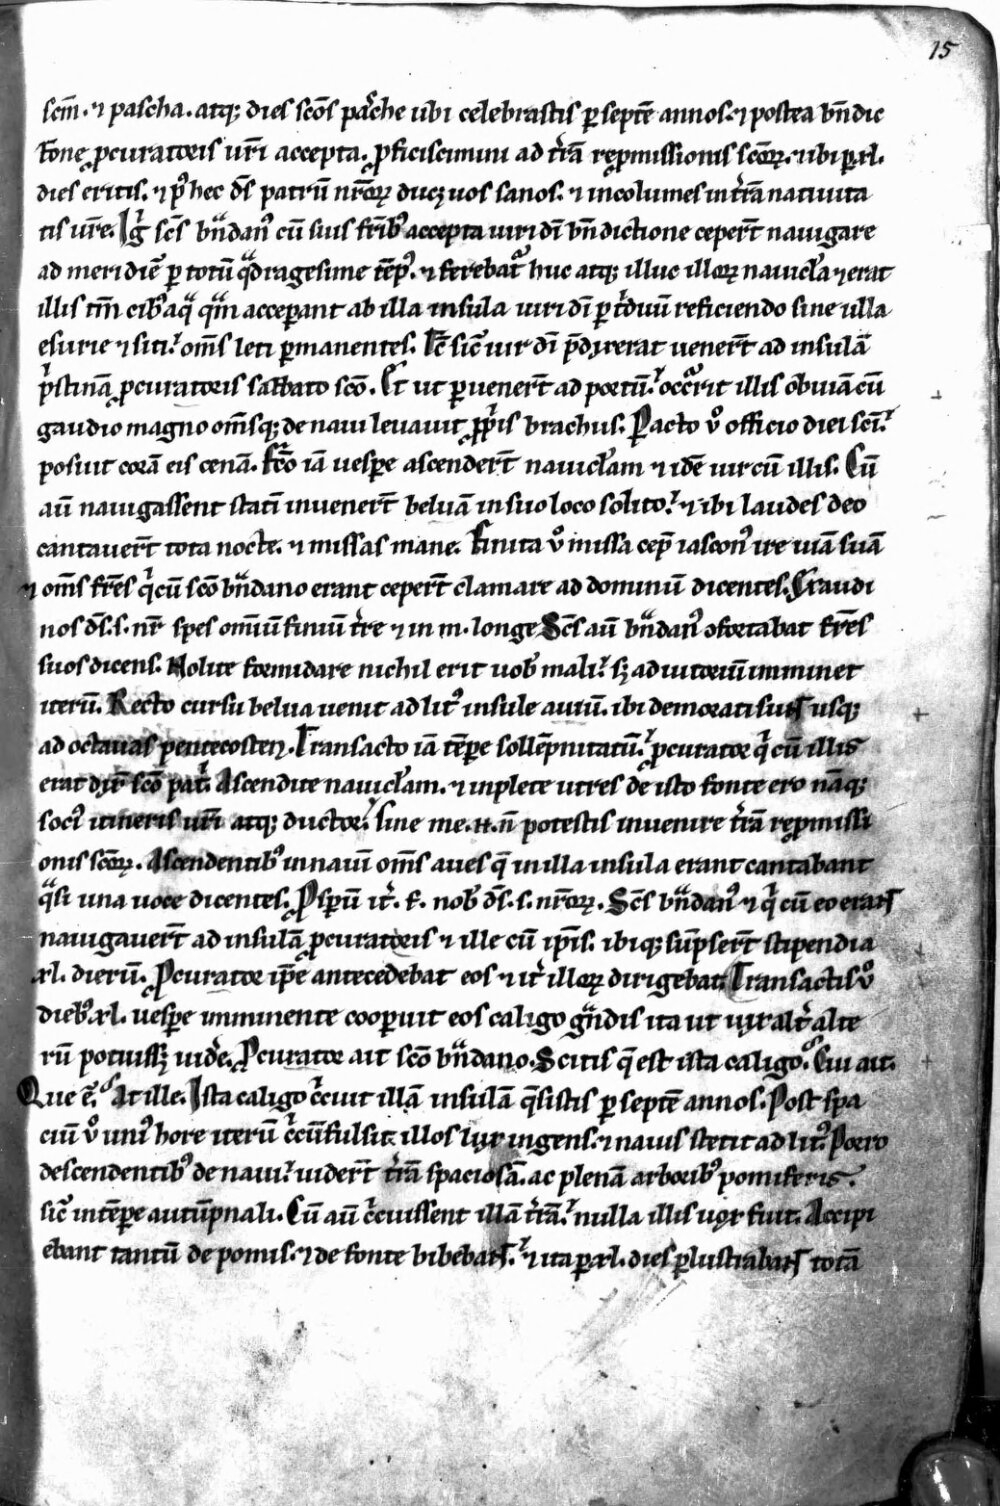 15
scm̄. ⁊ pascha. atq; dies scōs pasche ubi celebrastis ꝑ septē annos. ⁊ postea bn̄dic
tione ꝓcuratoris uri accepta. ꝓficiscimini ad t̄rā repmissionis scōꝝ. ⁊ ibi ꝑ xl.
dies eritis. ⁊ ꝑ hec d̄s patrū nr̄oꝝ ducꝫ uos sanos. ⁊ incolumes in t̄rā natiuita
tis ure. Ig̍ scs̄ bn̄dan᷒ cū suis frīb᷒ accepta uiri dī bn̄dictione ceper̄t nauigare
ad meridiē ꝑ totū qͣdragesime tēp᷒. ⁊ ferebat᷑ huc atq; illuc illoꝝ nauicl̄a ⁊ erat
illis tm̄ cib᷒ aqͣ qͣm acceperant ab illa insula uiri dī ꝑ tͥduū reficiendo sine ulla
esurie ⁊ siti. om̄s leti ꝑmanentes. Tc̄ sic᷒ uir dī p̄dixerat uener̄t ad insulā
pͥstinā ꝓcuratoris sabbato scō. Et ut ꝑuener̄t ad portū. occr̄rit illis obuiā cū
gaudio magno om̄sq; de naui leuauit ꝓpͥis brachiis. Pacto v̊ officio diei scī.
posuit corā eis cenā. Fcō iā uespe ascender̄t nauicl̄am ⁊ idē uir cū illis. Cū
aū nauigassent statī inuener̄t beluā in suo loco solito. ⁊ ibi laudes deo
cantauer̄t tota nocte. ⁊ missas mane. Finita v̊ missa cep̄ iascon᷒ ire uiā suā
⁊ om̄s fr̄es qͥ cū scō bn̄dano erant ceper̄t clamare ad dominū dicentes. Exaudi
nos d̄s. s. nr̄ spes om̄iū finiū tr̄e ⁊ in m. longe Scs̄ aū bn̄dan᷒ ꝯfortabat fr̄es
suos dicens. Nolite formidare nichil erit uob᷒ mali. sꝫ adiutoriū imminet
iterū. Recto cursu belua uenit ad lit᷒ insule auiū. ibi demorati sunt usq;
ad octauas pentecosten. Transacto iā tēpe sollēpnitatū. ꝓcurator qͥ cū illis
erat dix̄ scō pat̍. Ascendite nauicl̄am. ⁊ inplete utres de isto fonte ero nāq;
soci᷒ itineris uri atq; ductor. sine me. H. n̄ potestis inuenire t̄rā repmissi
onis scōꝝ. Ascendentib᷒ in nauī om̄s aues q̄ in illa insula erant cantabant
qͣsi una uoce dicentes. Psperū it̍. f. nob᷒ d̄s. s. nr̄oꝝ. Scs̄ bn̄dan᷒ ⁊ qͥ cū eo erant
nauigauer̄t ad insulā ꝓcuratoris ⁊ ille cū ip̄is. ibiq; sūpser̄t stipendia
xl. dierū. Pcurator ip̄e antecedebat eos ⁊ it̍ illoꝝ dirigebat. Transactis v̊
dieb᷒ xl. uespe imminente cooperuit eos caligo gͣndis ita ut uix alt̍ alte
rū potuissꝫ uid̍e. Pcurator ait scō bn̄dano. Scitis q̄ est ista caligo. Cui ait.
Que ē. At ille. Ista caligo cͥcuit illā insulā q̄sistis ꝑ septē annos. Post spa
ciū v̊ uni᷒ hore iterū cͥcūfulsit illos lux ingens. ⁊ nauis stetit ad lit᷒. Porro
descendentib᷒ de naui. uider̄t t̄rā spaciosā. ac plenā arborib᷒ pomiferis.
sic᷒ in tēpe autūpnali. Cū aū cͥcuissent illā t̄rā. nulla illis nox fuit. Accipi
ebant tantū de pomis. ⁊ de fonte bibebant. ⁊ ita ꝑ xl. dies ꝑlustrabant totā